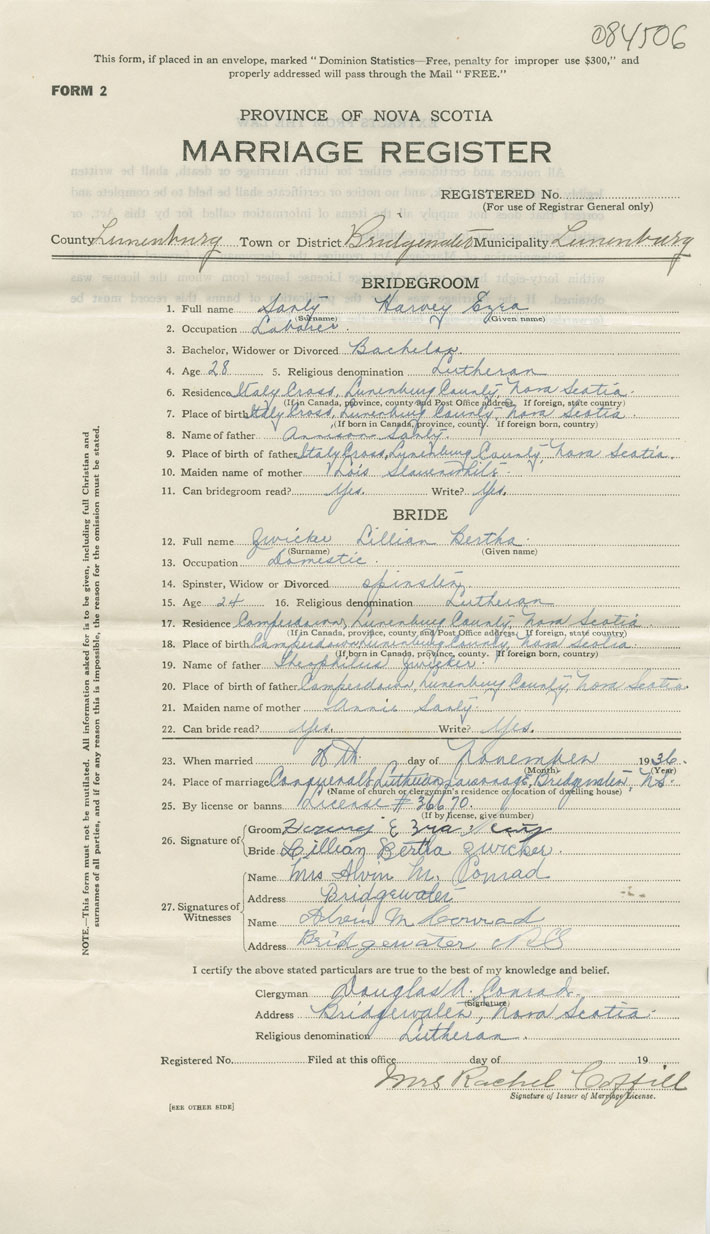 084506
This form, if placed in an envelope, marked "Dominion Statistics—Free, penalty for improper use $300," and
properly addressed will pass through the Mail "FREE."
FORM 2
PROVINCE OF NOVA SCOTIA
MARRIAGE REGISTER
REGISTERED No.
(For use of Registrar General only)
County Lunenburg Town or District Bridgewater Municipality Lunenburg
BRIDEGROOM
1. Full name Sarty Harvey Ezra
(Surname) (Given name)
2. Occupation Laborer.
3. Bachelor, Widower or Divorced Bachelor.
4. Age 28 5. Religious denomination Lutheran
6. Residence Italy Cross, Lunenburg County, Nova Scotia.
(If in Canada, province, county and Post Office address. If foreign, state country)
7. Place of birth Italy Cross, Lunenburg County, Nova Scotia.
(If born in Canada, province, county. If foreign born, country)
8. Name of father Sarty.
9. Place of birth of father Italy Cross, Lunenburg County, Nova Scotia.
10. Maiden name of mother Lois
11. Can bridegroom read? Yes. Write? Yes.
BRIDE
12. Full name Zwicker Lillian Bertha.
(Surname) (Given name)
13. Occupation Domestic.
14. Spinster, Widow or Divorced Spinster.
15. Age 24 16. Religious denomination Lutheran
17. Residence Camperdown, Lunenburg County, Nova Scotia.
(If in Canada, province, county and Post Office address. If foreign, state country)
18. Place of birth Camperdown, Lunenburg County, Nova Scotia.
(If born in Canada, province, county. If foreign born, country)
19. Name of father Theophilus Zwicker.
20. Place of birth of father Camperdown, Lunenburg County, Nova Scotia.
21. Maiden name of mother Annie Sarty.
22. Can bride read? Yes. Write? Yes.
23. When married day of November 1936.
(Month) (Year)
24. Place of marriage Lutheran Parsonage, Bridgewater, N.S.
(Name of church or clergyman's residence or location of dwelling house)
25. By license or banns License # 36670.
(If by license, give number)
26. Signature of
Groom Ezra
Bride Lillian Bertha Zwicker.
27. Signatures of Witnesses
Name Mrs Alvin M. Conrad
Address Bridgewater
Name Alvin M Conrad
Address Bridgewater N S
I certify the above stated particulars are true to the best of my knowledge and belief.
Clergyman Douglas A. Conrad.
(Signature)
Address Bridgewater, Nova Scotia.
Religious denomination Lutheran.
Registered No. Filed at this office day of 19
Mrs Rachel Coffill
Signature of Issuer of Marriage License.
[SEE OTHER SIDE]
NOTE.—This form must not be mutilated. All information asked for is to be given, including full Christian and
surnames of all parties, and if for any reason this is impossible, the reason for the omission must be stated.